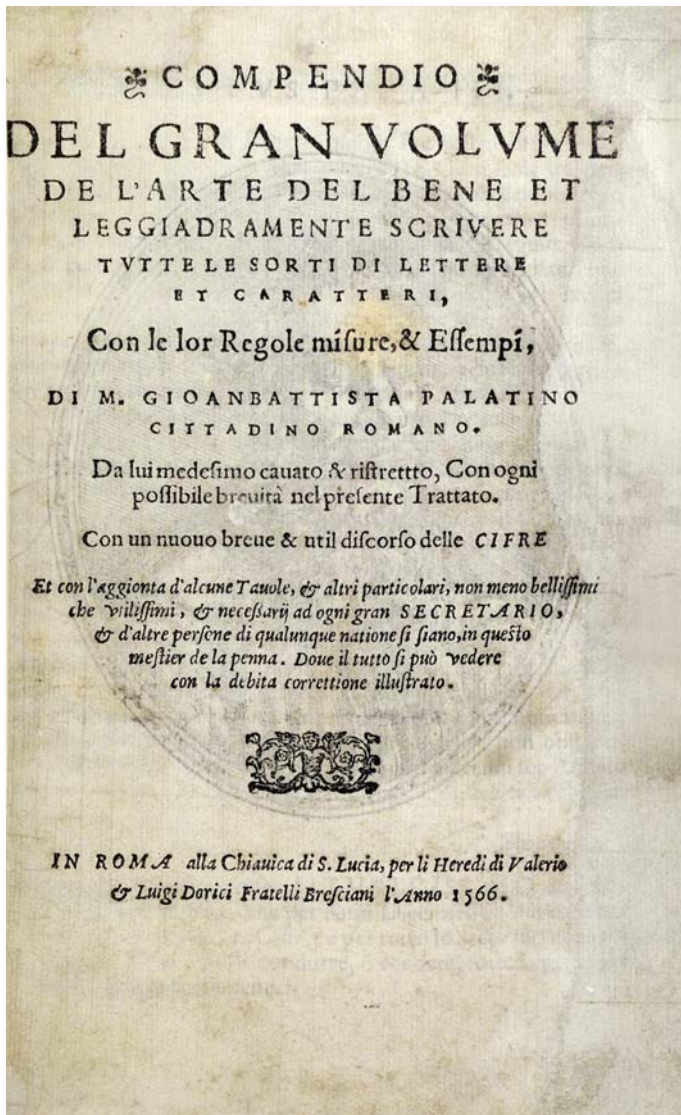 COMPENDIO
DEL GRAN VOLVME
DE L'ARTE DEL BENE ET
LEGGIADRAMENTE SCRIVERE
TVTTE LE SORTI DI LETTERE
ET CARATTERI,
Con le lor Regole miſure, & Eſſempi,
DI M. GIOANBATTISTA PALATINO
CITTADINO ROMANO.
Da lui medeſimo cauato & riſtrettto, Con ogni
poſſibile breuità nel preſente Trattato.
Con un nuouo breue & util diſcorſo delle CIFRE
Et con l'aggionta d'alcune Tauole, & altri particolari, non meno belliſſimi
che vtiliſſimi, & neceſſarij ad ogni gran SECRETARIO,
& d'altre perſone di qualunque natione ſi ſiano, in queſto
meſtier de la penna. Doue il tutto ſi può vedere
con la debita correttione illuſtrato.
IN ROMA alla Chiauica di S. Lucia, per li Heredi di Valerio
& Luigi Dorici Fratelli Breſciani l'Anno 1566.